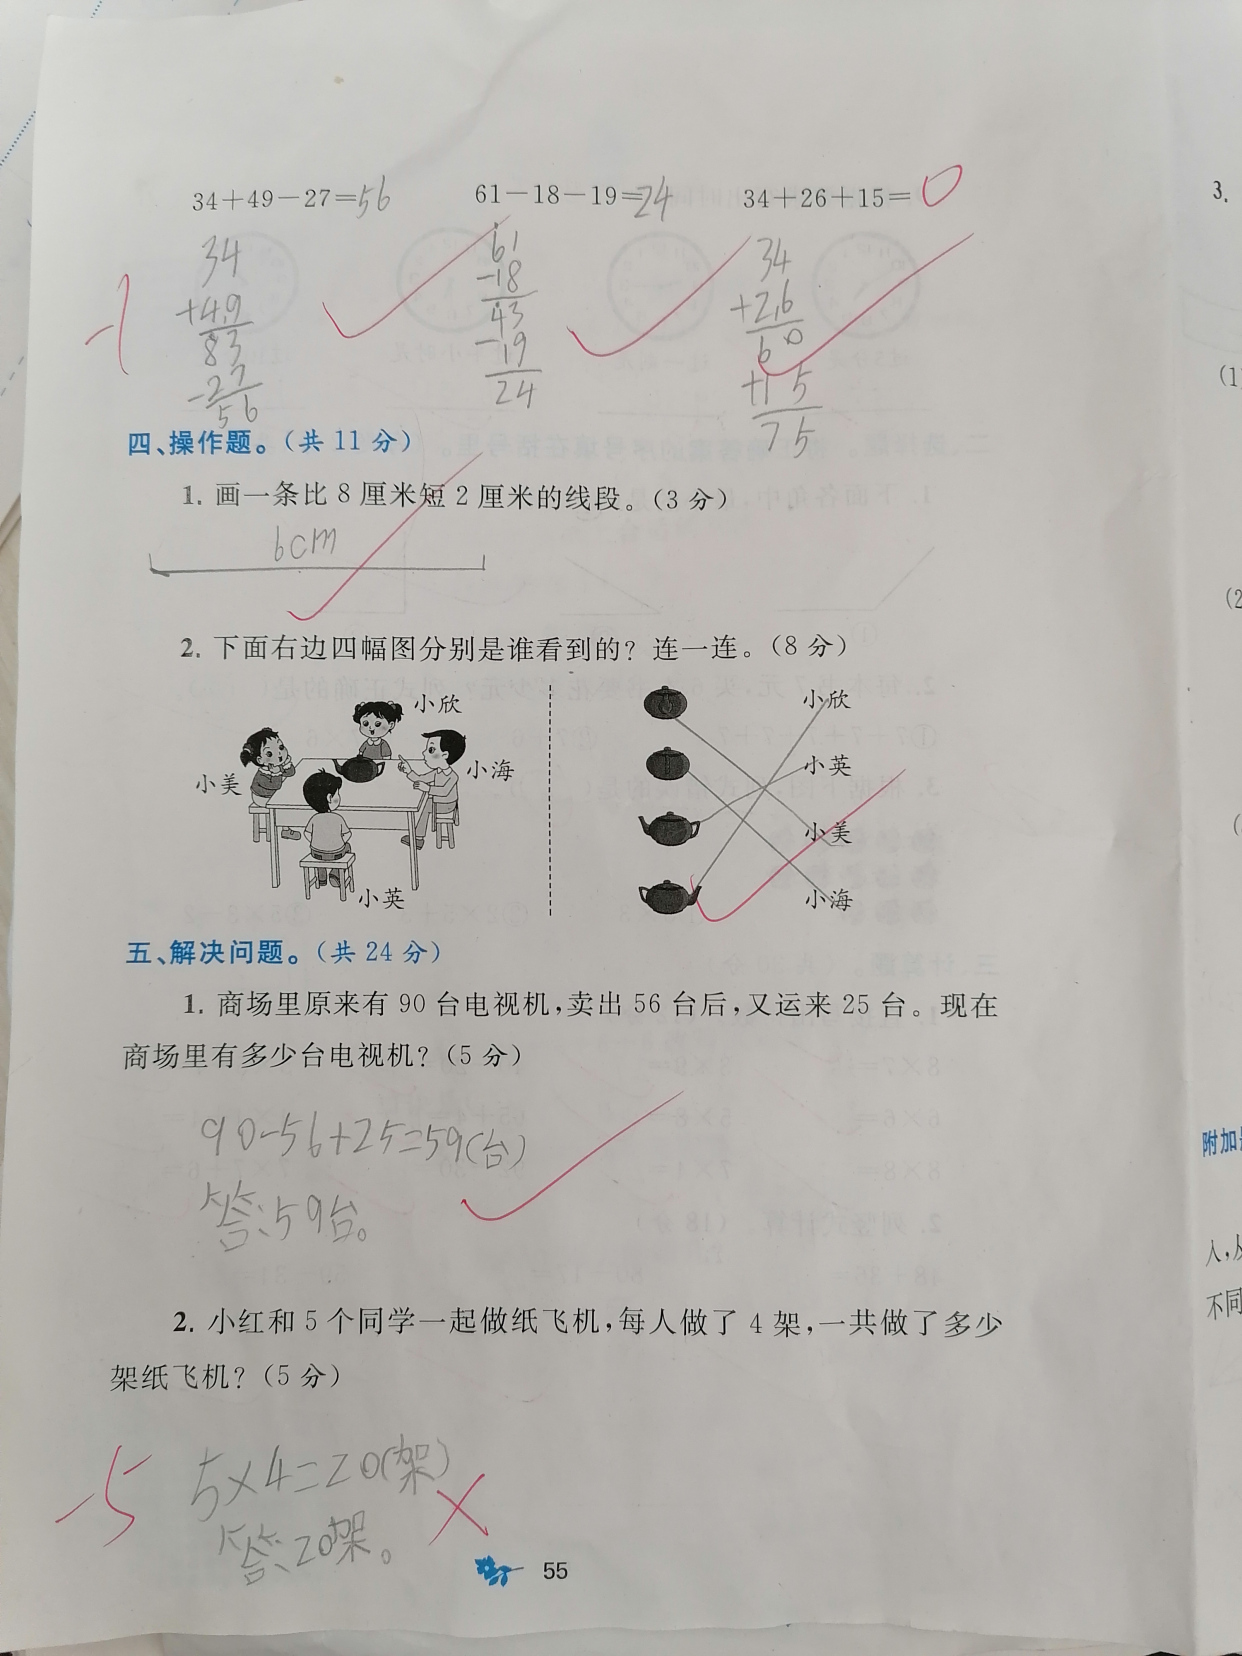 34+49-27=56 61-18-19=24 34+26+15=
34 61 34
+49 -18 +26
83 43 60
-27 -19 +15
56 24 75
-1
四、操作题。(共 11 分)
1. 画一条比 8 厘米短 2 厘米的线段。(3 分)
6cm
2. 下面右边四幅图分别是谁看到的? 连一连。(8 分)
小欣 小欣
小海 小英
小美 小美
小英 小海
五、解决问题。(共 24 分)
1. 商场里原来有 90 台电视机,卖出 56 台后,又运来 25 台。现在
商场里有多少台电视机?(5 分)
90-56+25=59(台)
答:59台。
2. 小红和 5 个同学一起做纸飞机,每人做了 4 架,一共做了多少
架纸飞机?(5 分)
-5 5×4=20(架)
答:20架。
55
3.
(1
(2
附加
人,从
不同